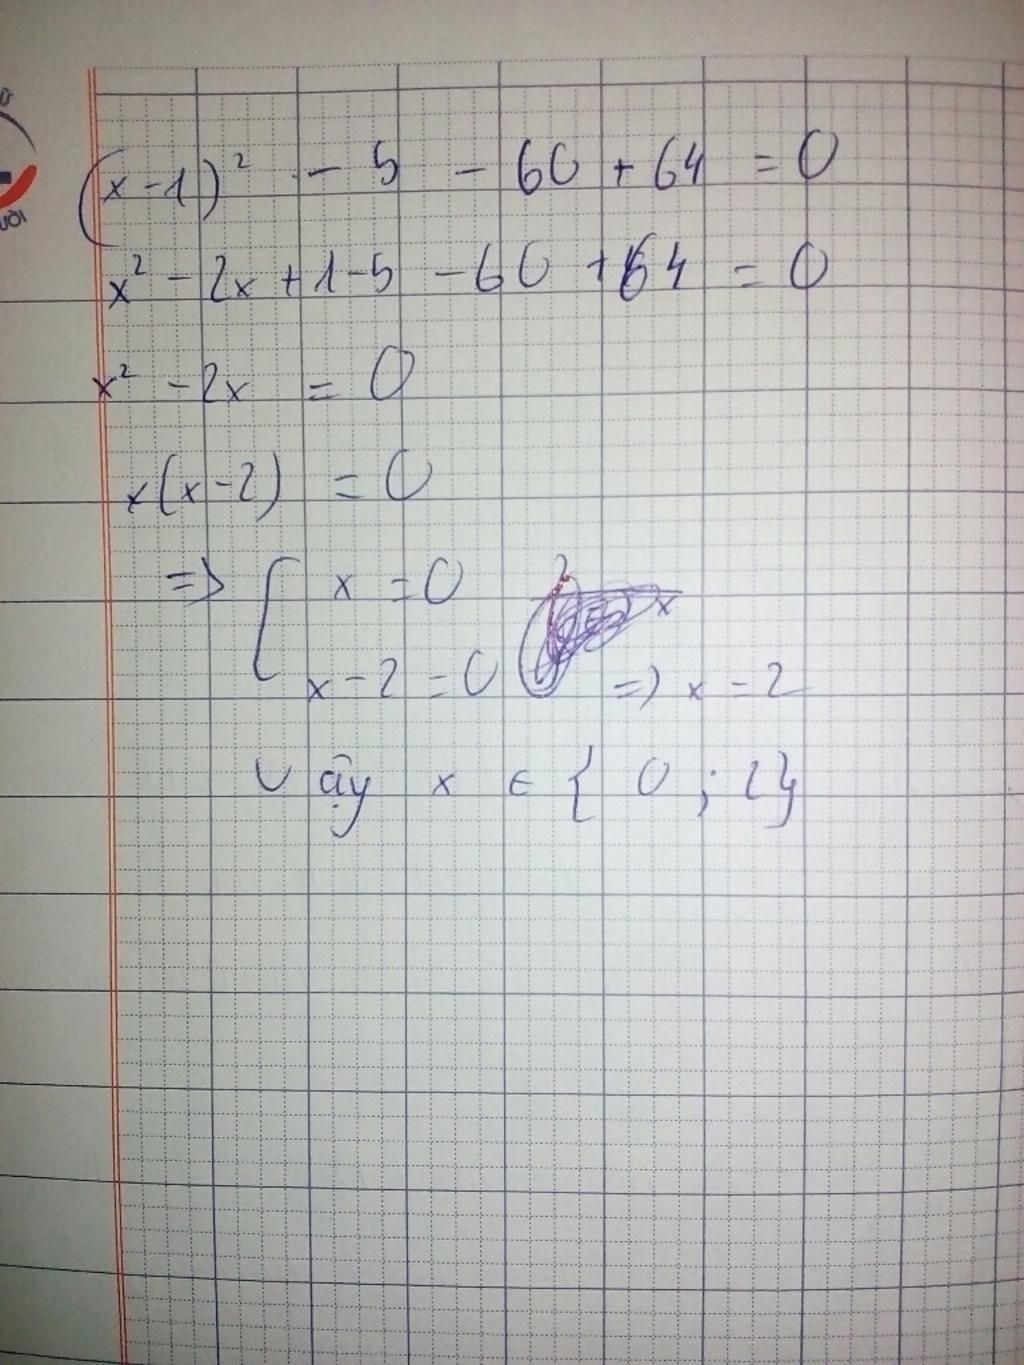 (x-1)² - 5 - 60 + 64 = 0
x² - 2x + 1 - 5 - 60 + 64 = 0
x² - 2x = 0
x(x-2) = 0
=> [ x = 0
x - 2 = 0 => x = 2
Vậy x ∈ { 0 ; 2}